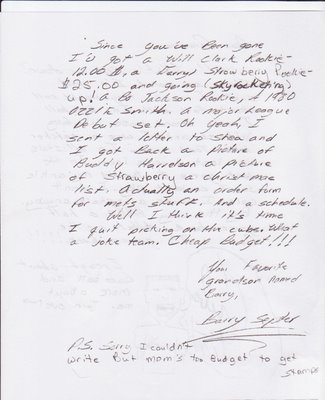 Since you've Been gone
I'v got a Will Clark Rookie-
12.00 $, a Darryl Strawberry Rookie-
$25.00 and going (skyrocketing)
up! a Bo Jackson Rookie, A 1980
Ozzie Smith. a major League
Debut set. Oh yeah, I
sent a letter to shea and
I got Back a Picture of
Buddy Harrelson a Picture
of Strawberry a christmas
list. Actually an order form
for mets stuff. And a schedule.
Well I think it's time
I quit picking on the cubs. What
a joke team. Cheap Budget!!!
Your Favorite
grandson Named
Barry,
Barry
P.S. Sorry I couldn't
write But mom's too Budget to get
stamps